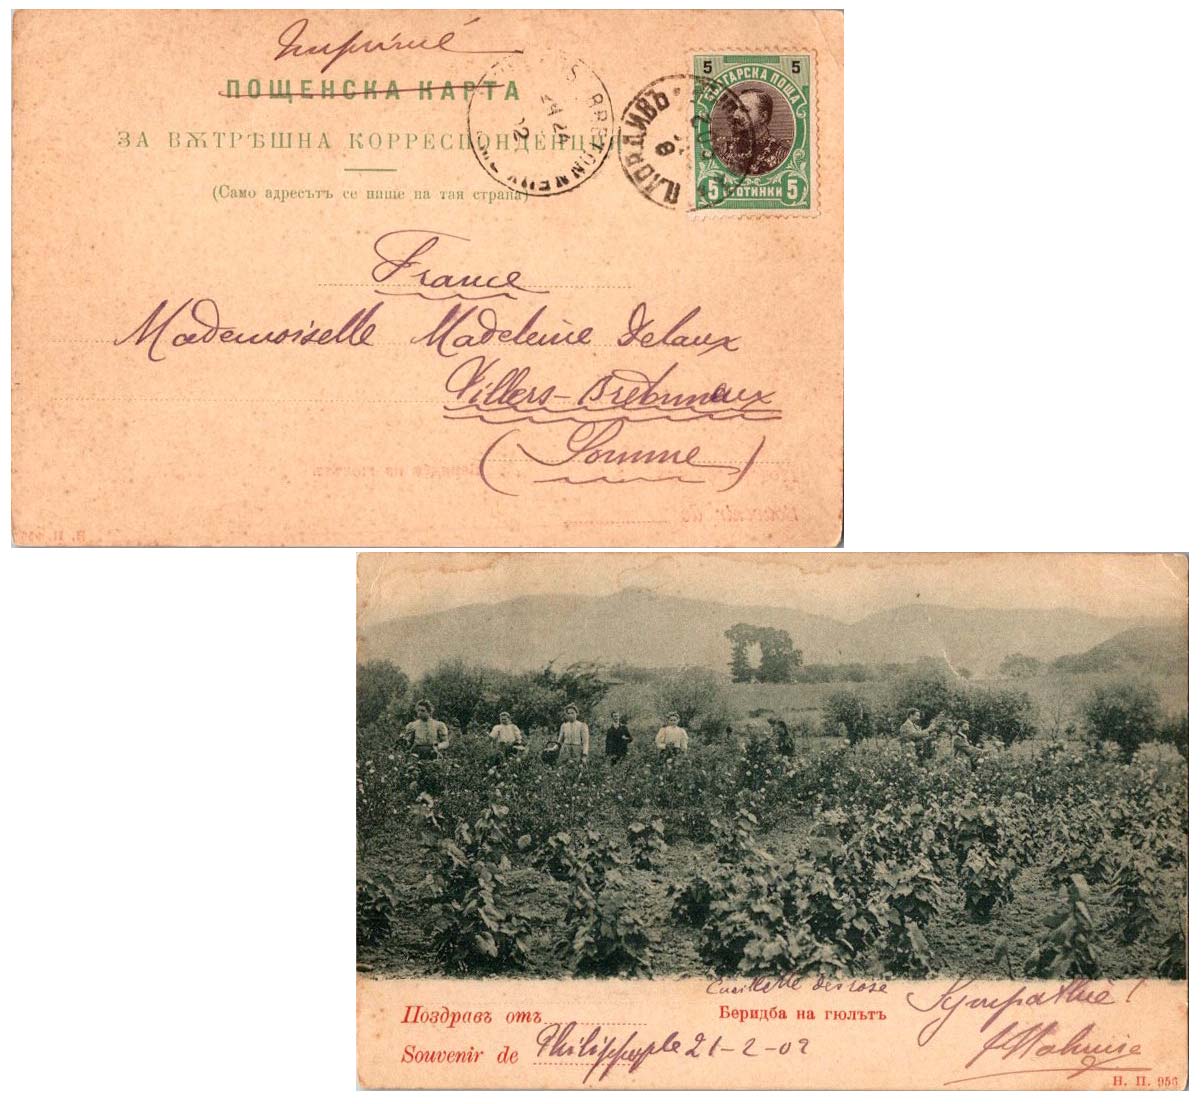 Imprimé
ПОЩЕНСКА КАРТА
ЗА ВѪТРѢШНА КОРРЕСПОНДЕНЦИЯ
(Само адресътъ се пише на тая страна)
5 5
БЪЛГАРСКА ПОЩА
5 СТОТИНКИ 5
ПЛОВДИВЪ
France
Mademoiselle Madeleine Delaux
Villers-Bretonneux
(Somme)
Поздравъ отъ
Souvenir de Philippople 21-2-02
Cueillette des rose
Беридба на гюлътъ
Sympathie!
Н. П. 956